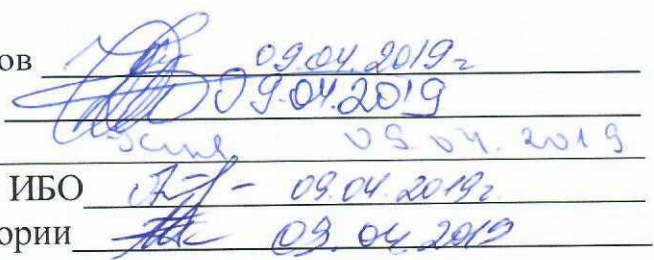 ов 09.04.2019г
09.04.2019
09.04.2019
ИБО 09.04.2019г
ории 09.04.2019